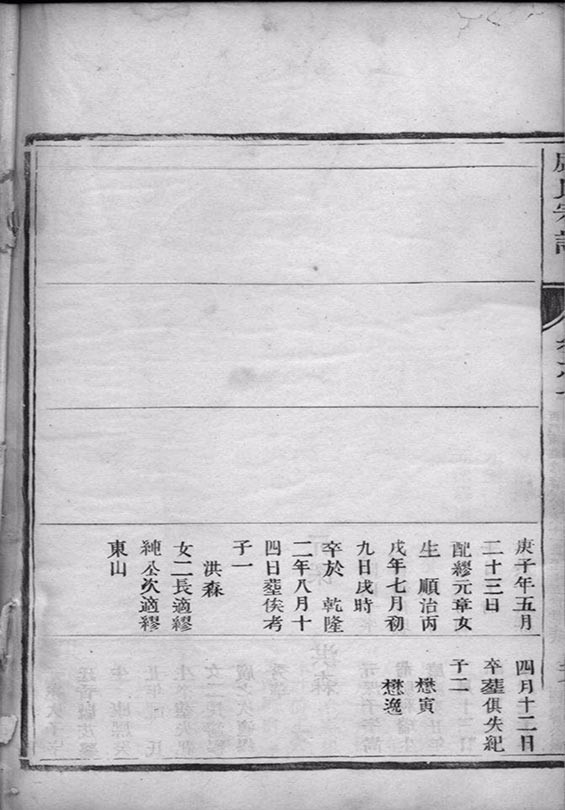 氏宗譜
卷之
庚子年五月
二十三日
配繆元章女
生 順治丙
戌年七月初
九日戌時
卒於 乾隆
二年八月十
四日塟俟考
子一
洪森
女二長適繆
純公次適繆
東山
四月十二日
卒塟俱失紀
子二
懋寅
懋逸